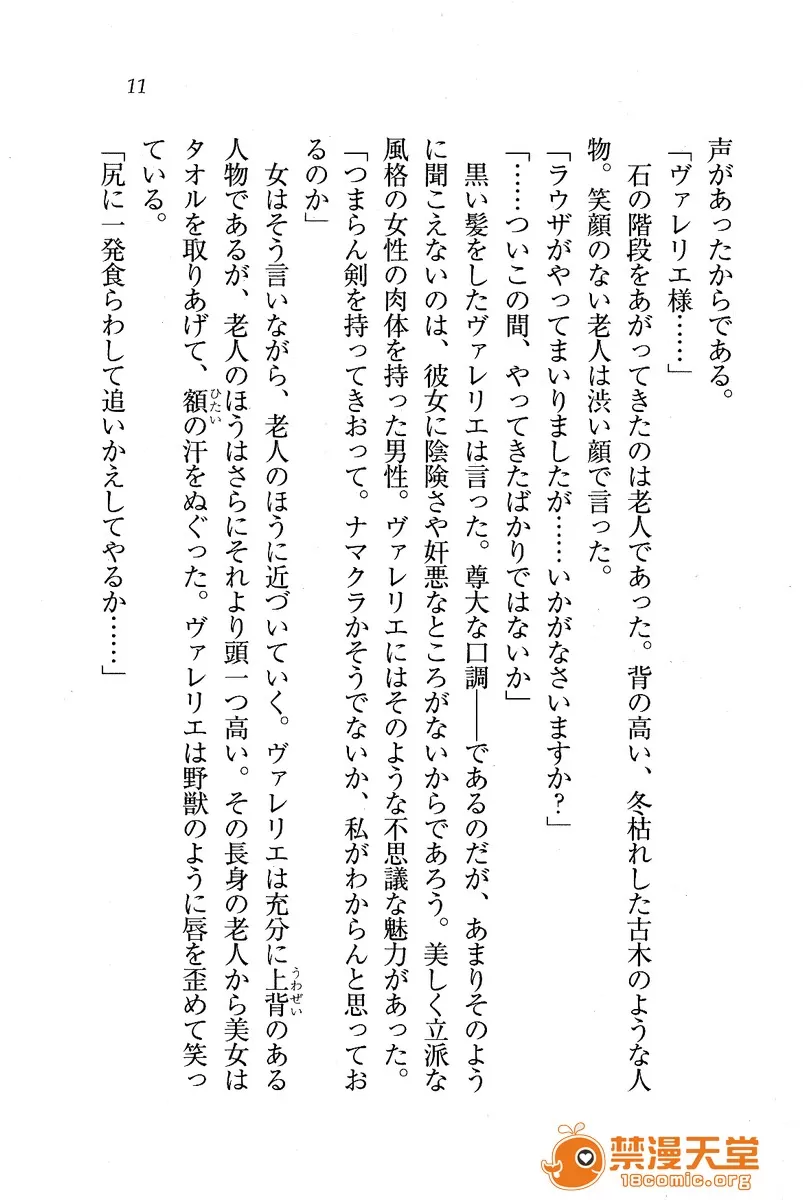 11
声があったからである。
「ヴァレリエ様……」
石の階段をあがってきたのは老人であった。背の高い、冬枯れした古木のような人
物。笑顔のない老人は渋い顔で言った。
「ラウザがやってまいりましたが……いかがなさいますか?」
「……ついこの間、やってきたばかりではないか」
黒い髪をしたヴァレリエは言った。尊大な口調――であるのだが、あまりそのよう
に聞こえないのは、彼女に陰険さや奸悪なところがないからであろう。美しく立派な
風格の女性の肉体を持った男性。ヴァレリエにはそのような不思議な魅力があった。
「つまらん剣を持ってきおって。ナマクラかそうでないか、私がわからんと思ってお
るのか」
女はそう言いながら、老人のほうに近づいていく。ヴァレリエは充分に上背のある
うわぜい
人物であるが、老人のほうはさらにそれより頭一つ高い。その長身の老人から美女は
タオルを取りあげて、額の汗をぬぐった。ヴァレリエは野獣のように唇を歪めて笑っ
ひたい
ている。
「尻に一発食らわして追いかえしてやるか……」
禁漫天堂
18comic.org